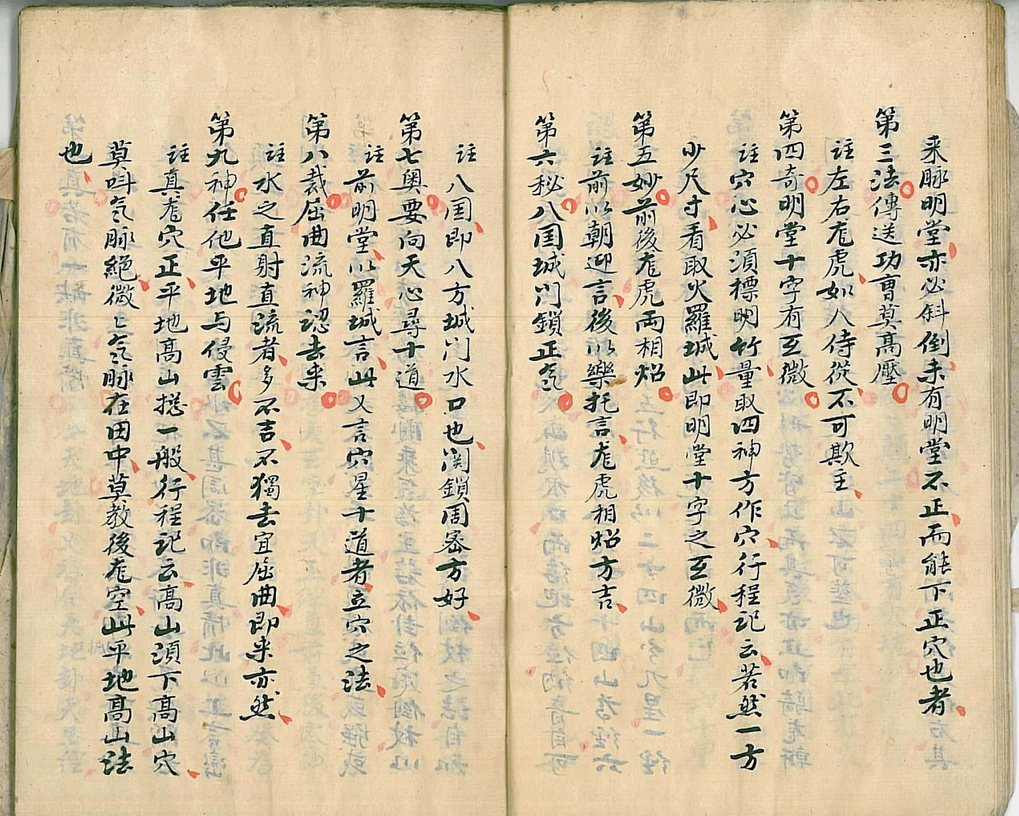 来脉明堂亦必斜倒未有明堂不正而能下正穴也者
第三法傳送功曹莫高壓
註左右龙虎如八侍從不可欺主
第四奇明堂十字有玄微
註穴心必須標明竹量取四神方作穴行程記云若然一方
少尺寸看取火羅城此即明堂十字之玄微
第五妙前後龙虎両相炤
註前以朝迎言後以樂托言龙虎相炤方吉
第六秘八国城门鎖正气
註八国即八方城门水口也関鎖周密方好
第七奥要向天心尋十道
註前明堂以羅城言此又言穴星十道者立穴之法
第八裁屈曲流神認去来
註水之直射直流者多不吉不獨去宜屈曲即来亦然
第九神任他平地与侵雲
註真龙穴正平地高山捴一般行程記云高山須下高山穴
莫呌气脉絕微〻气脉在田中莫教後龙空此平地高山法
也